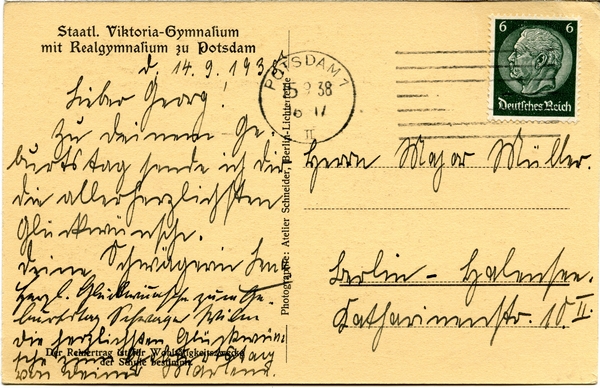 Staatl. Viktoria-Gymnasium
mit Realgymnasium zu Potsdam
d. 14.9.1938
Lieber Georg!
Zu deinem Ge-
burtstag sende ich dir
die allerherzlichsten
Glückwünsche.
Deine Schwägerin
Herzl. Glückwünsche zum Ge-
burtstag
die herzlichsten Glückwün-
sche zum
von Deiner
Der Reinertrag ist für Wohltätigkeitszwecke
der Schule bestimmt
Photographie: Atelier Schneider, Berlin-Lichterfelde
POTSDAM 1
9.38
II
6 6
Deutsches Reich
Herrn Major Müller.
Berlin - Halensee.
Katharinenstr. 10 II.